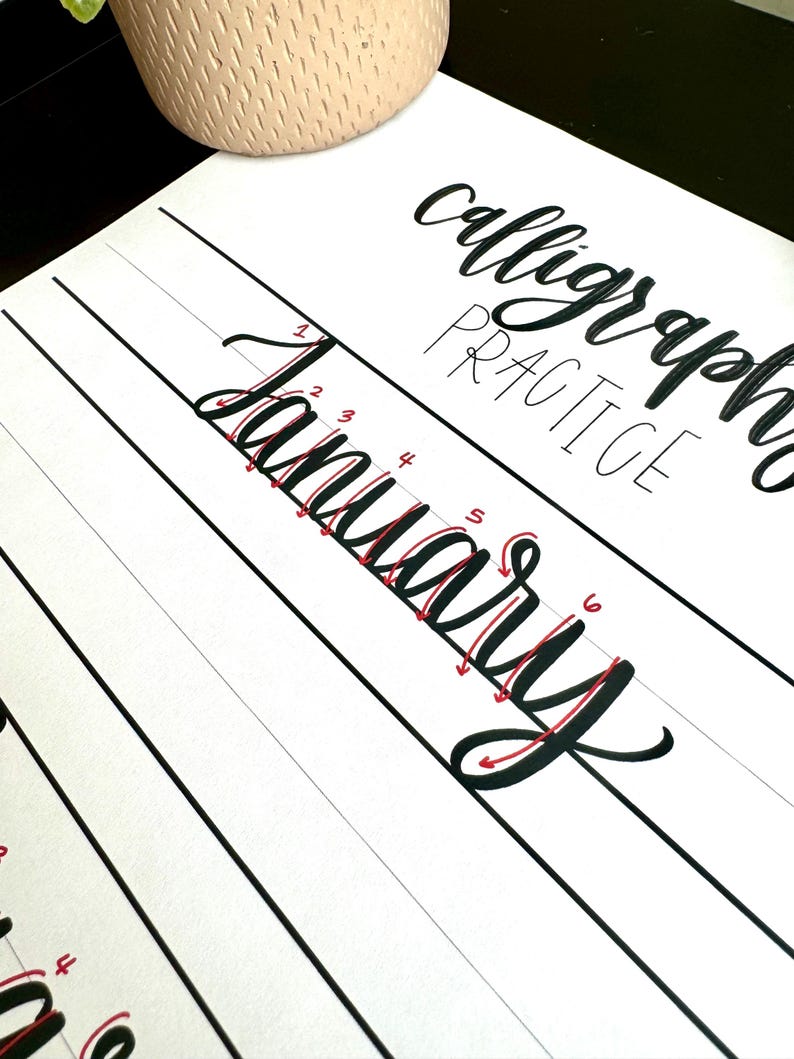 calligraphy
PRACTICE
1 2 3 4 5 6
January
4